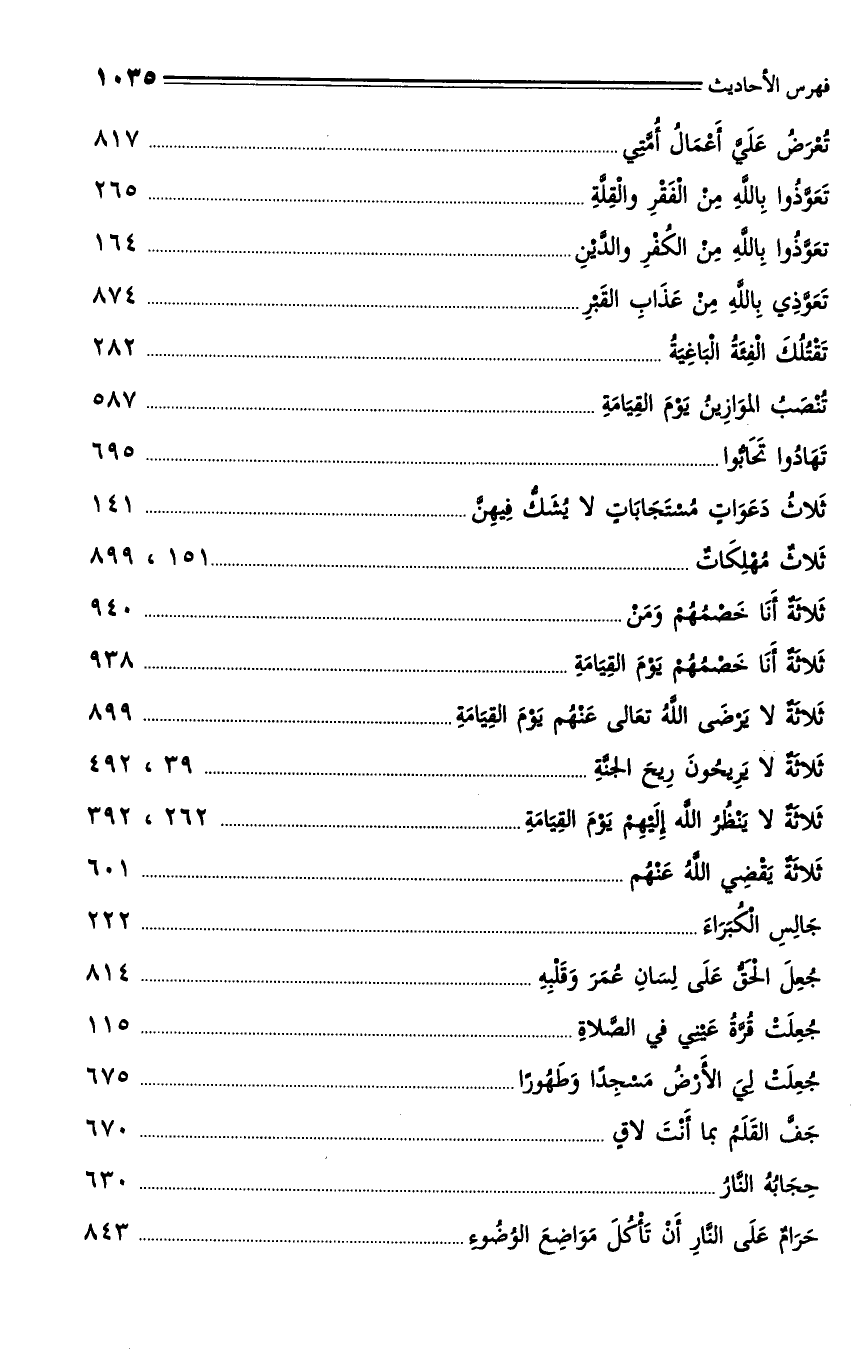 فهرس الأحاديث ١٠٣٥
تُعْرَضُ عَلَيَّ أَعْمَالُ أُمَّتِي ٨١٧
تَعَوَّذُوا بِاللَّهِ مِنْ الْفَقْرِ والْقِلَّةِ ٢٦٥
تعَوَّذُوا بِاللَّهِ مِنْ الكُفْرِ والدَّيْنِ ١٦٤
تَعَوَّذِي بِاللَّهِ مِنْ عَذَابِ القَبْرِ ٨٧٤
تَقْتُلُكَ الْفِئَةُ الْبَاغِيَةُ ٢٨٢
تُنْصَبُ الموَازِينُ يَوْمَ القِيَامَةِ ٥٨٧
تَهَادُوا تَحَابُّوا ٦٩٥
ثَلاثُ دَعَوَاتٍ مُسْتَجَابَاتٍ لا يُشَكُّ فِيهِنَّ ١٤١
ثَلاثٌ مُهْلِكَاتٌ ١٥١ ، ٨٩٩
ثَلاثَةٌ أَنَا خَصْمُهُمْ وَمَنْ ٩٤٠
ثَلاثَةٌ أَنَا خَصْمُهُمْ يَوْمَ القِيَامَةِ ٩٣٨
ثَلاثَةٌ لا يَرْضَى اللَّهُ تعَالى عَنْهُم يَوْمَ القِيَامَةِ ٨٩٩
ثَلاثَةٌ لا يَرِيحُونَ رِيحَ الجنَّةِ ٣٩ ، ٤٩٢
ثَلاثَةٌ لا يَنْظُرُ اللَّه إِلَيْهِمْ يَوْمَ القِيَامَةِ ٢٦٢ ، ٣٩٢
ثَلاثَةٌ يَقْضِي اللَّهُ عَنْهُم ٦٠١
جَالِسِ الْكُبَرَاءَ ٢٢٢
جُعِلَ الْحَقُّ عَلَى لِسَانِ عُمَرَ وَقَلْبِهِ ٨١٤
جُعِلَتْ قُرَّةُ عَيْنِي في الصَّلاةِ ١١٥
جُعِلَتْ لِيَ الأَرْضُ مَسْجِدًا وَطَهُورًا ٦٧٥
جَفَّ القَلَمُ بما أَنْتَ لاقٍ ٦٧٠
حِجَابُهُ النَّارُ ٦٣٠
حَرَامٌ عَلَى النَّارِ أَنْ تَأْكُلَ مَوَاضِعَ الوُضُوءِ ٨٤٣